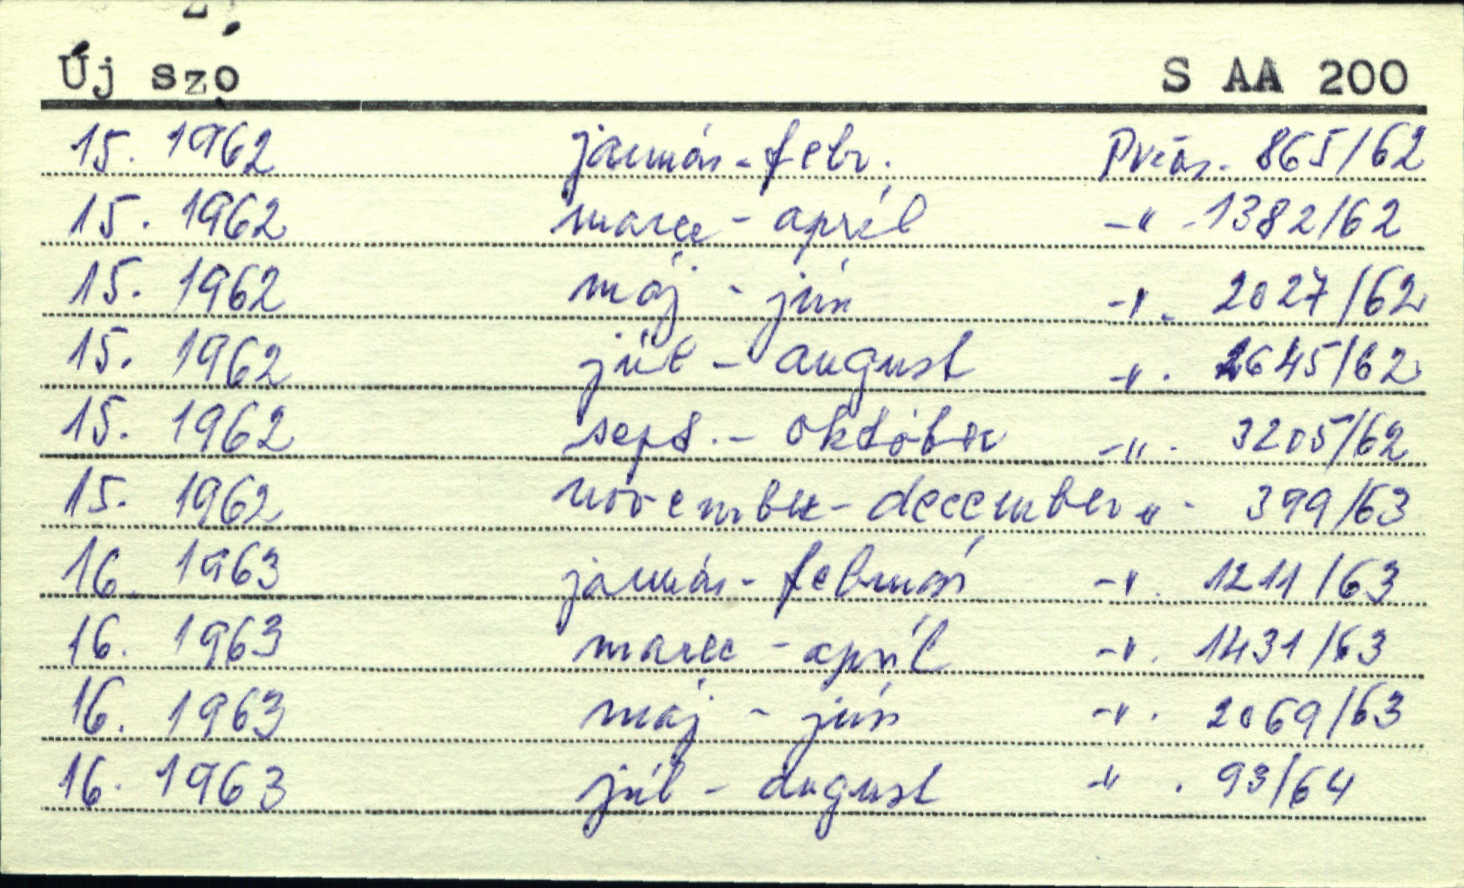 Új szó S AA 200
15. 1962 január-febr. Prír. 865/62
15. 1962 marec - apríl -"- 1382/62
15. 1962 máj - jún -"- 2027/62
15. 1962 júl - august -"- 2645/62
15. 1962 sept. - október -"- 3205/62
15. 1962 november - december -"- 399/63
16. 1963 január - február -"- 1211/63
16. 1963 marec - apríl -"- 1431/63
16. 1963 máj - jún -"- 2069/63
16. 1963 júl - august -"- 93/64